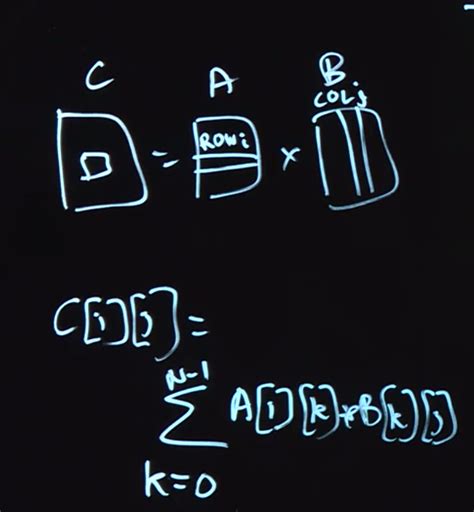 C A B
COLj
ROWi
= ×
C[i][j] =
N-1
∑ A[i][k]*B[k][j]
k=0